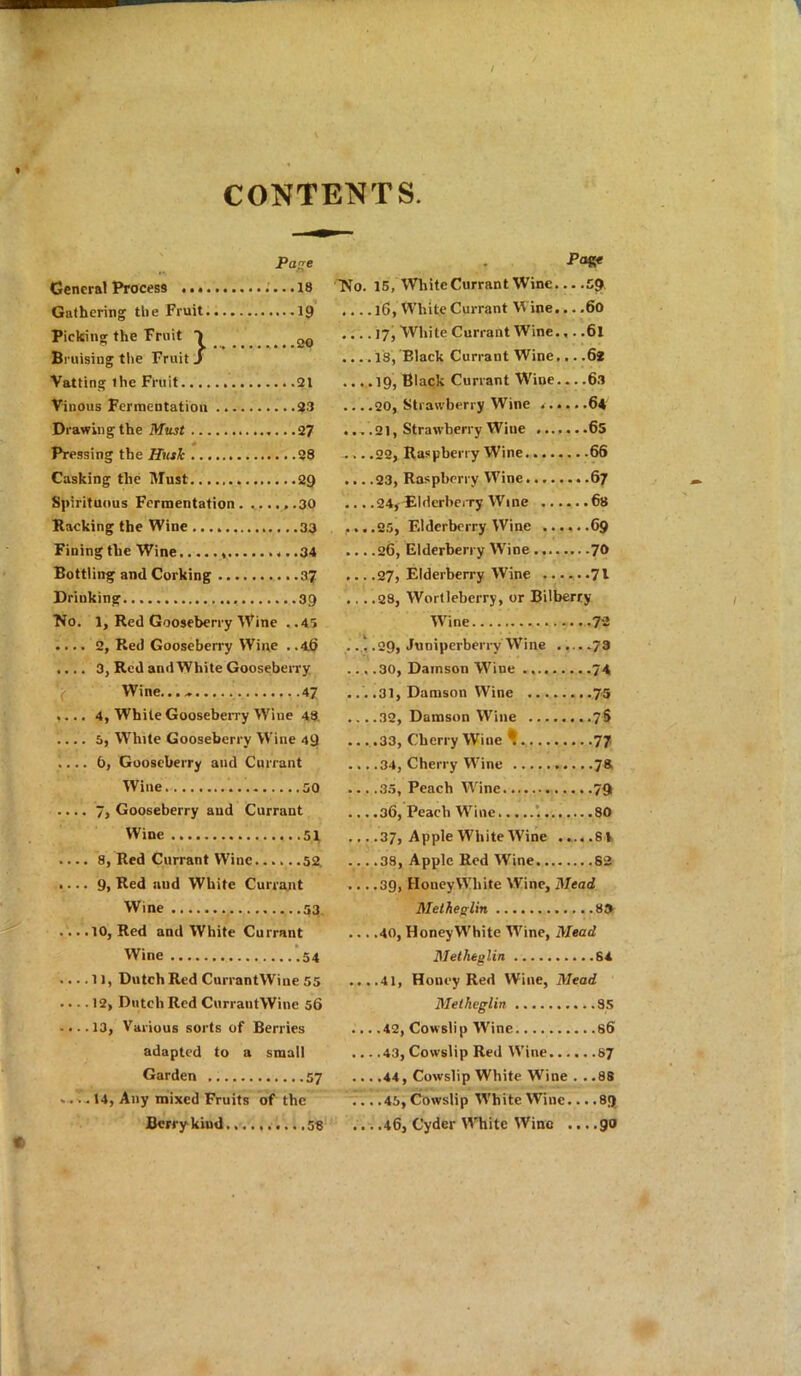 CONTENTS.
Page
General Process ...............18
Gathering the Fruit.............19
Picking the Fruit }
Bruising the Fruit } ............20
Vatting the Fruit...............21
Vinous Fermentation ...........23
Drawing the Must ..............27
Pressing the Husk ..............28
Casking the Must...............29
Spirituous Fermentation........30
Racking the Wine ..............33
Fining the Wine................34
Bottling and Corking ...........37
Drinking........................39
No. 1, Red Gooseberry Wine ..45
.... 2, Red Gooseberry Wine ..46
.... 3, Red and White Gooseberry
Wine...................47
.... 4, White Gooseberry Wine 48
.... 5, White Gooseberry Wine 49
.... 6, Gooseberry and Currant
Wine...................50
.... 7, Gooseberry and Currant
Wine ..................51
.... 8, Red Currant Wine......52
.... 9, Red and White Currant
Wine ..................53
....10, Red and White Currant
Wine ..................54
....11, Dutch Red CurrantWine 55
....12, Dutch Red CurrantWine 56
....13, Various sorts of Berries
adapted to a small
Garden ...............57
....14, Any mixed Fruits of the
Berry kind.............58
Page
No. 15, White Currant Wine....59
....16, White Currant Wine....60
....17, White Currant Wine....61
....18, Black Currant Wine....62
....19, Black Currant Wine....63
....20, Strawberry Wine ......64
....21, Strawberry Wine .......65
....22, Raspberry Wine.........66
....23, Raspberry Wine.........67
....24, Elderberry Wine ......68
....25, Elderberry Wine ......69
....26, Elderberry Wine ........70
....27, Elderberry Wine .......71
....28, Wortleberry, or Bilberry
Wine...................72
....29, Juniperberry Wine .....73
....30, Damson Wine ..........74
....31, Damson Wine .........75
....32, Damson Wine .........76
....33, Cherry Wine ...........77
....34, Cherry Wine ...........78
....35, Peach Wine.............79
....36, Peach Wine.............80
....37, Apple White Wine .....81
....38, Apple Red Wine........82
....39, HoneyWhite Wine, Mead
Metheglin .............83
....40, HoneyWhite Wine, Mead
Metheglin ..........84
....41, Honey Red Wine, Mead
Metheglin ..........85
....42, Cowslip Wine...........86
....43, Cowslip Red Wine......87
....44, Cowslip White Wine ...88
....45, Cowslip White Wine....89
....46, Cyder White Wine ....90